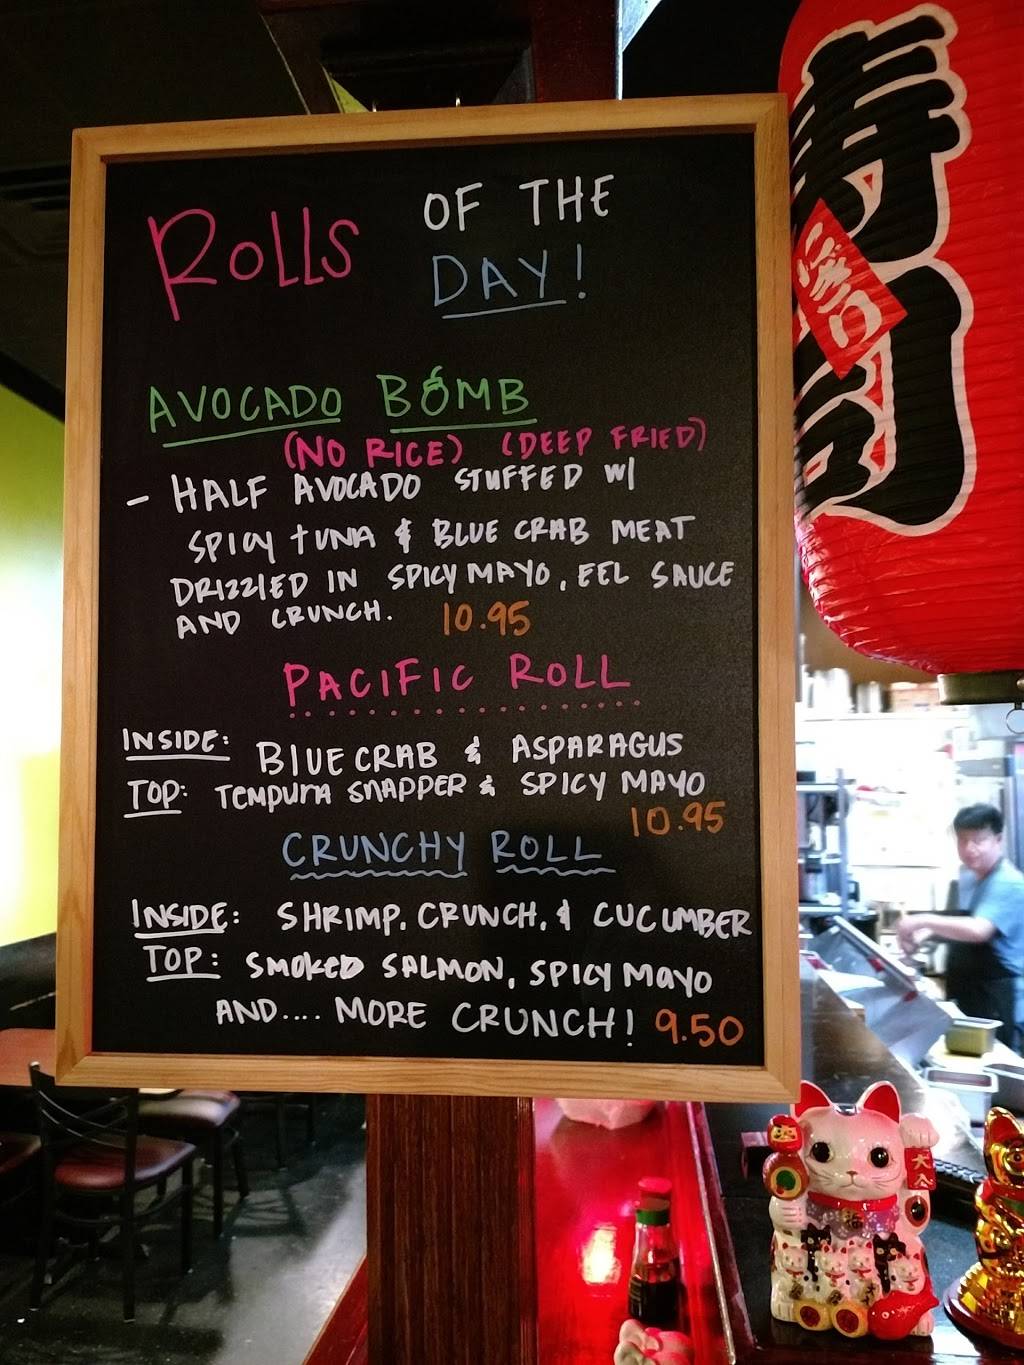 Rolls OF THE
DAY!
AVOCADO BOMB
(NO RICE) (DEEP FRIED)
- HALF AVOCADO STUFFED W/
SPICY TUNA & BLUE CRAB MEAT
DRIZZLED IN SPICY MAYO, EEL SAUCE
AND CRUNCH. 10.95
PACIFIC ROLL
INSIDE: BLUE CRAB & ASPARAGUS
TOP: TEMPURA SNAPPER & SPICY MAYO
10.95
CRUNCHY ROLL
INSIDE: SHRIMP, CRUNCH, & CUCUMBER
TOP: SMOKED SALMON, SPICY MAYO
AND.... MORE CRUNCH! 9.50
寿司